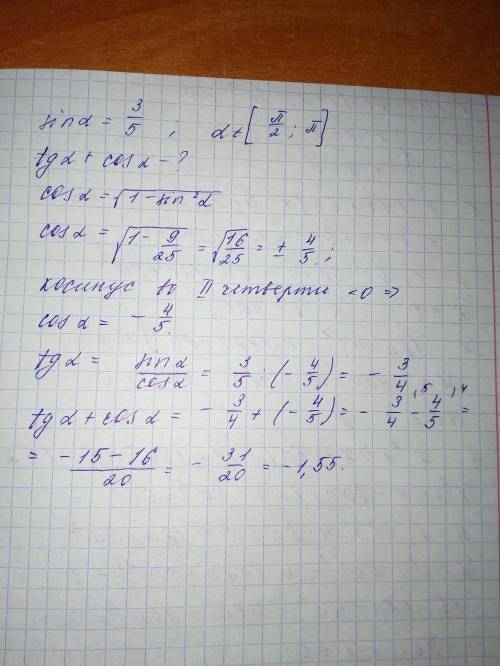 sin α = 3/5 ; α ∈ [π/2; π]
tg α + cos α - ?
cos α = √(1 - sin²α)
cos α = √(1 - 9/25) = √(16/25) = ± 4/5 ;
косинус во II четверти <0 =>
cos α = - 4/5.
tg α = sin α/cos α = 3/5 : (- 4/5) = - 3/4
tg α + cos α = - 3/4 + (- 4/5) = - 3/4 ⁽⁵ - 4/5 ⁽⁴ =
= (-15 - 16)/20 = - 31/20 = -1,55.